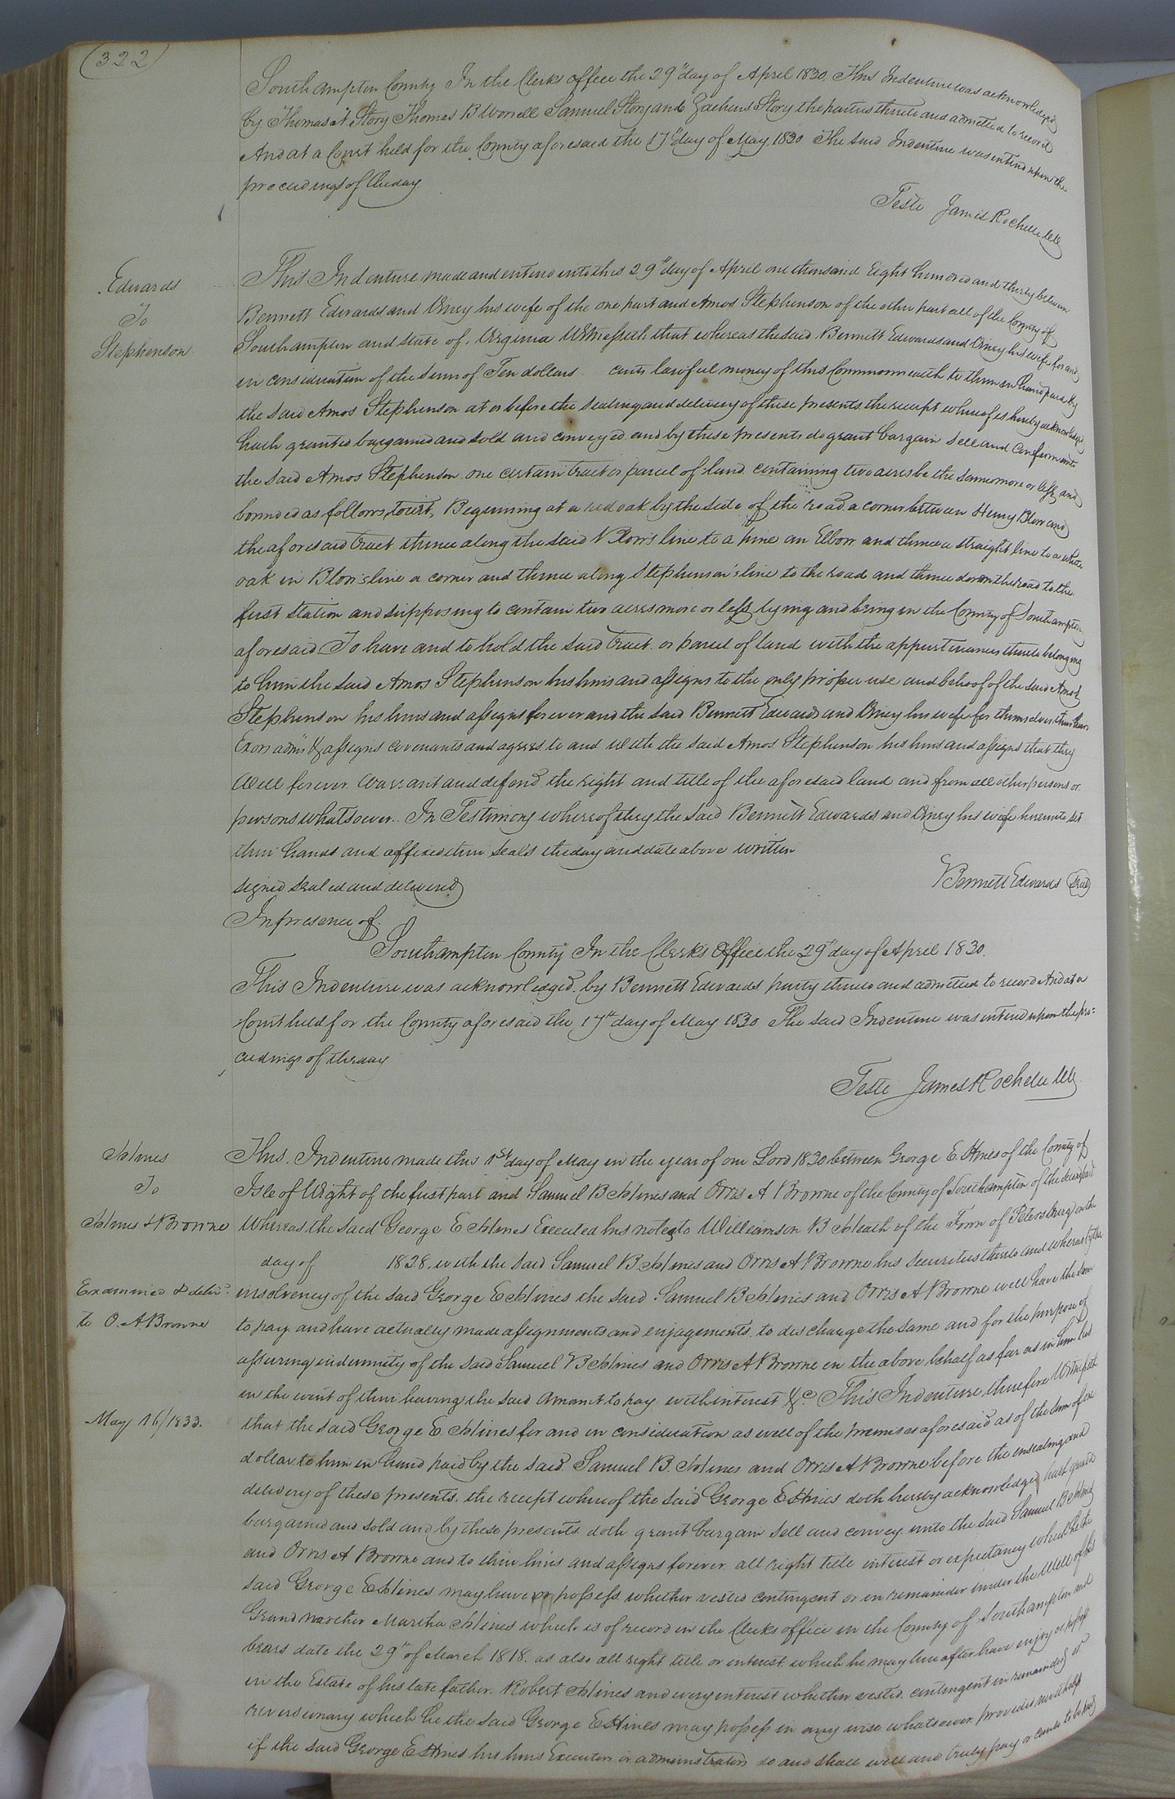 (322)
Southampton County In the Clerks office the 29th day of April 1830 This Indenture was acknowledged
by Thomas Story Thomas B Worrell Samuel Story and Zacheus Story the parties thereto and admitted to record
And at a Court held for the County aforesaid the 17th day of May 1830 The said Indenture was entered upon the
proceedings of the day
Teste James Rochelle Clk
Edwards
To
Stephenson
This Indenture made and entered into this 29th day of April one thousand Eight hundred and thirty between
Bennett Edwards and his wife of the one part and Amos Stephenson of the other part all of the County of
Southampton and state of Virginia Witnesseth that whereas the said Bennett Edwards and his wife for and
in consideration of the sum of Ten dollars cents lawful money of this Commonwealth to them in hand paid by
the said Amos Stephenson at or before the sealing and delivery of these presents the receipt whereof is hereby acknowledged
hath granted bargained and sold and conveyed and by these presents do grant bargain sell and confirm unto
the said Amos Stephenson one certain tract or parcel of land containing two acres be the same more or less and
bounded as follows, towit, Beginning at a red oak by the side of the road a corner between Henry Blow and
the aforesaid tract thence along the said Blow's line to a pine an Elbow and thence a straight line to a white
oak in Blow's line a corner and thence along Stephenson's line to the road and thence down the road to the
first station and supposing to contain two acres more or less lying and being in the County of Southampton
aforesaid To have and to hold the said tract or parcel of land with the appurtenances thereto belonging
to him the said Amos Stephenson his heirs and assigns to the only proper use and behoof of the said Amos
Stephenson his heirs and assigns forever and the said Bennett Edwards and his wife for themselves their heirs
Exors admrs & assigns covenants and agrees to and with the said Amos Stephenson his heirs and assigns that they
will forever warrant and defend the right and title of the aforesaid land and from all other persons or
persons whatsoever. In Testimony whereof they the said Bennett Edwards and his wife hereunto set
their hands and affixed their seals the day and date above written
signed sealed and delivered
Bennett Edwards (Seal)
In presence of
Southampton County In the Clerks Office the 29th day of April 1830.
This Indenture was acknowledged by Bennett Edwards party thereto and admitted to record And at a
Court held for the County aforesaid the 17th day of May 1830 The said Indenture was entered upon the pro-
ceedings of the day
Teste James Rochelle Clk
Hines
To
Hines & Browne
Examined & delivd
to O. A Browne
May 16/1833.
This Indenture made this 1st day of May in the year of our Lord 1830 between George E. Hines of the County of
Isle of Wight of the first part and Samuel B Hines and Orris A Browne of the County of Southampton of the second part
Whereas the said George E Hines Executed his note to Williamson B Heath of the Town of Petersburg on the
day of 1828, with the said Samuel B Hines and Orris A Browne his securities thereto and whereas by the
insolvency of the said George E Hines the said Samuel B Hines and Orris A Browne will have the same
to pay and have actually made assignments and engagements to discharge the same and for the purpose of
assuring indemnity of the said Samuel B Hines and Orris A Browne in the above behalf as far as in him lies
in the event of their having the said amount to pay with interest &c. This Indenture therefore Witnesseth
that the said George E Hines for and in consideration as well of the premises aforesaid as of the sum of one
dollar to him in hand paid by the said Samuel B. Hines and Orris A Browne before the ensealing and
delivery of these presents, the receipt whereof the said George E Hines doth hereby acknowledge, hath granted
bargained and sold and by these presents doth grant bargain sell and convey unto the said Samuel B Hines
and Orris A Browne and to their heirs and assigns forever all right title interest or expectancy which he the
said George E Hines may have or possess whether vested contingent or in remainder under the Will of his
Grand mother Martha Hines which is of record in the Clerks office in the County of Southampton and
bears date the 29th of March 1818, as also all right title or interest which he may hereafter have enjoy or possess
in the Estate of his late father Robert Hines and every interest whether vested, contingent in remainder or
reversionary which he the said George E Hines may possess in any wise whatsoever provided nevertheless
if the said George E Hines his heirs Executors or administrators do and shall well and truly pay or cause to be paid